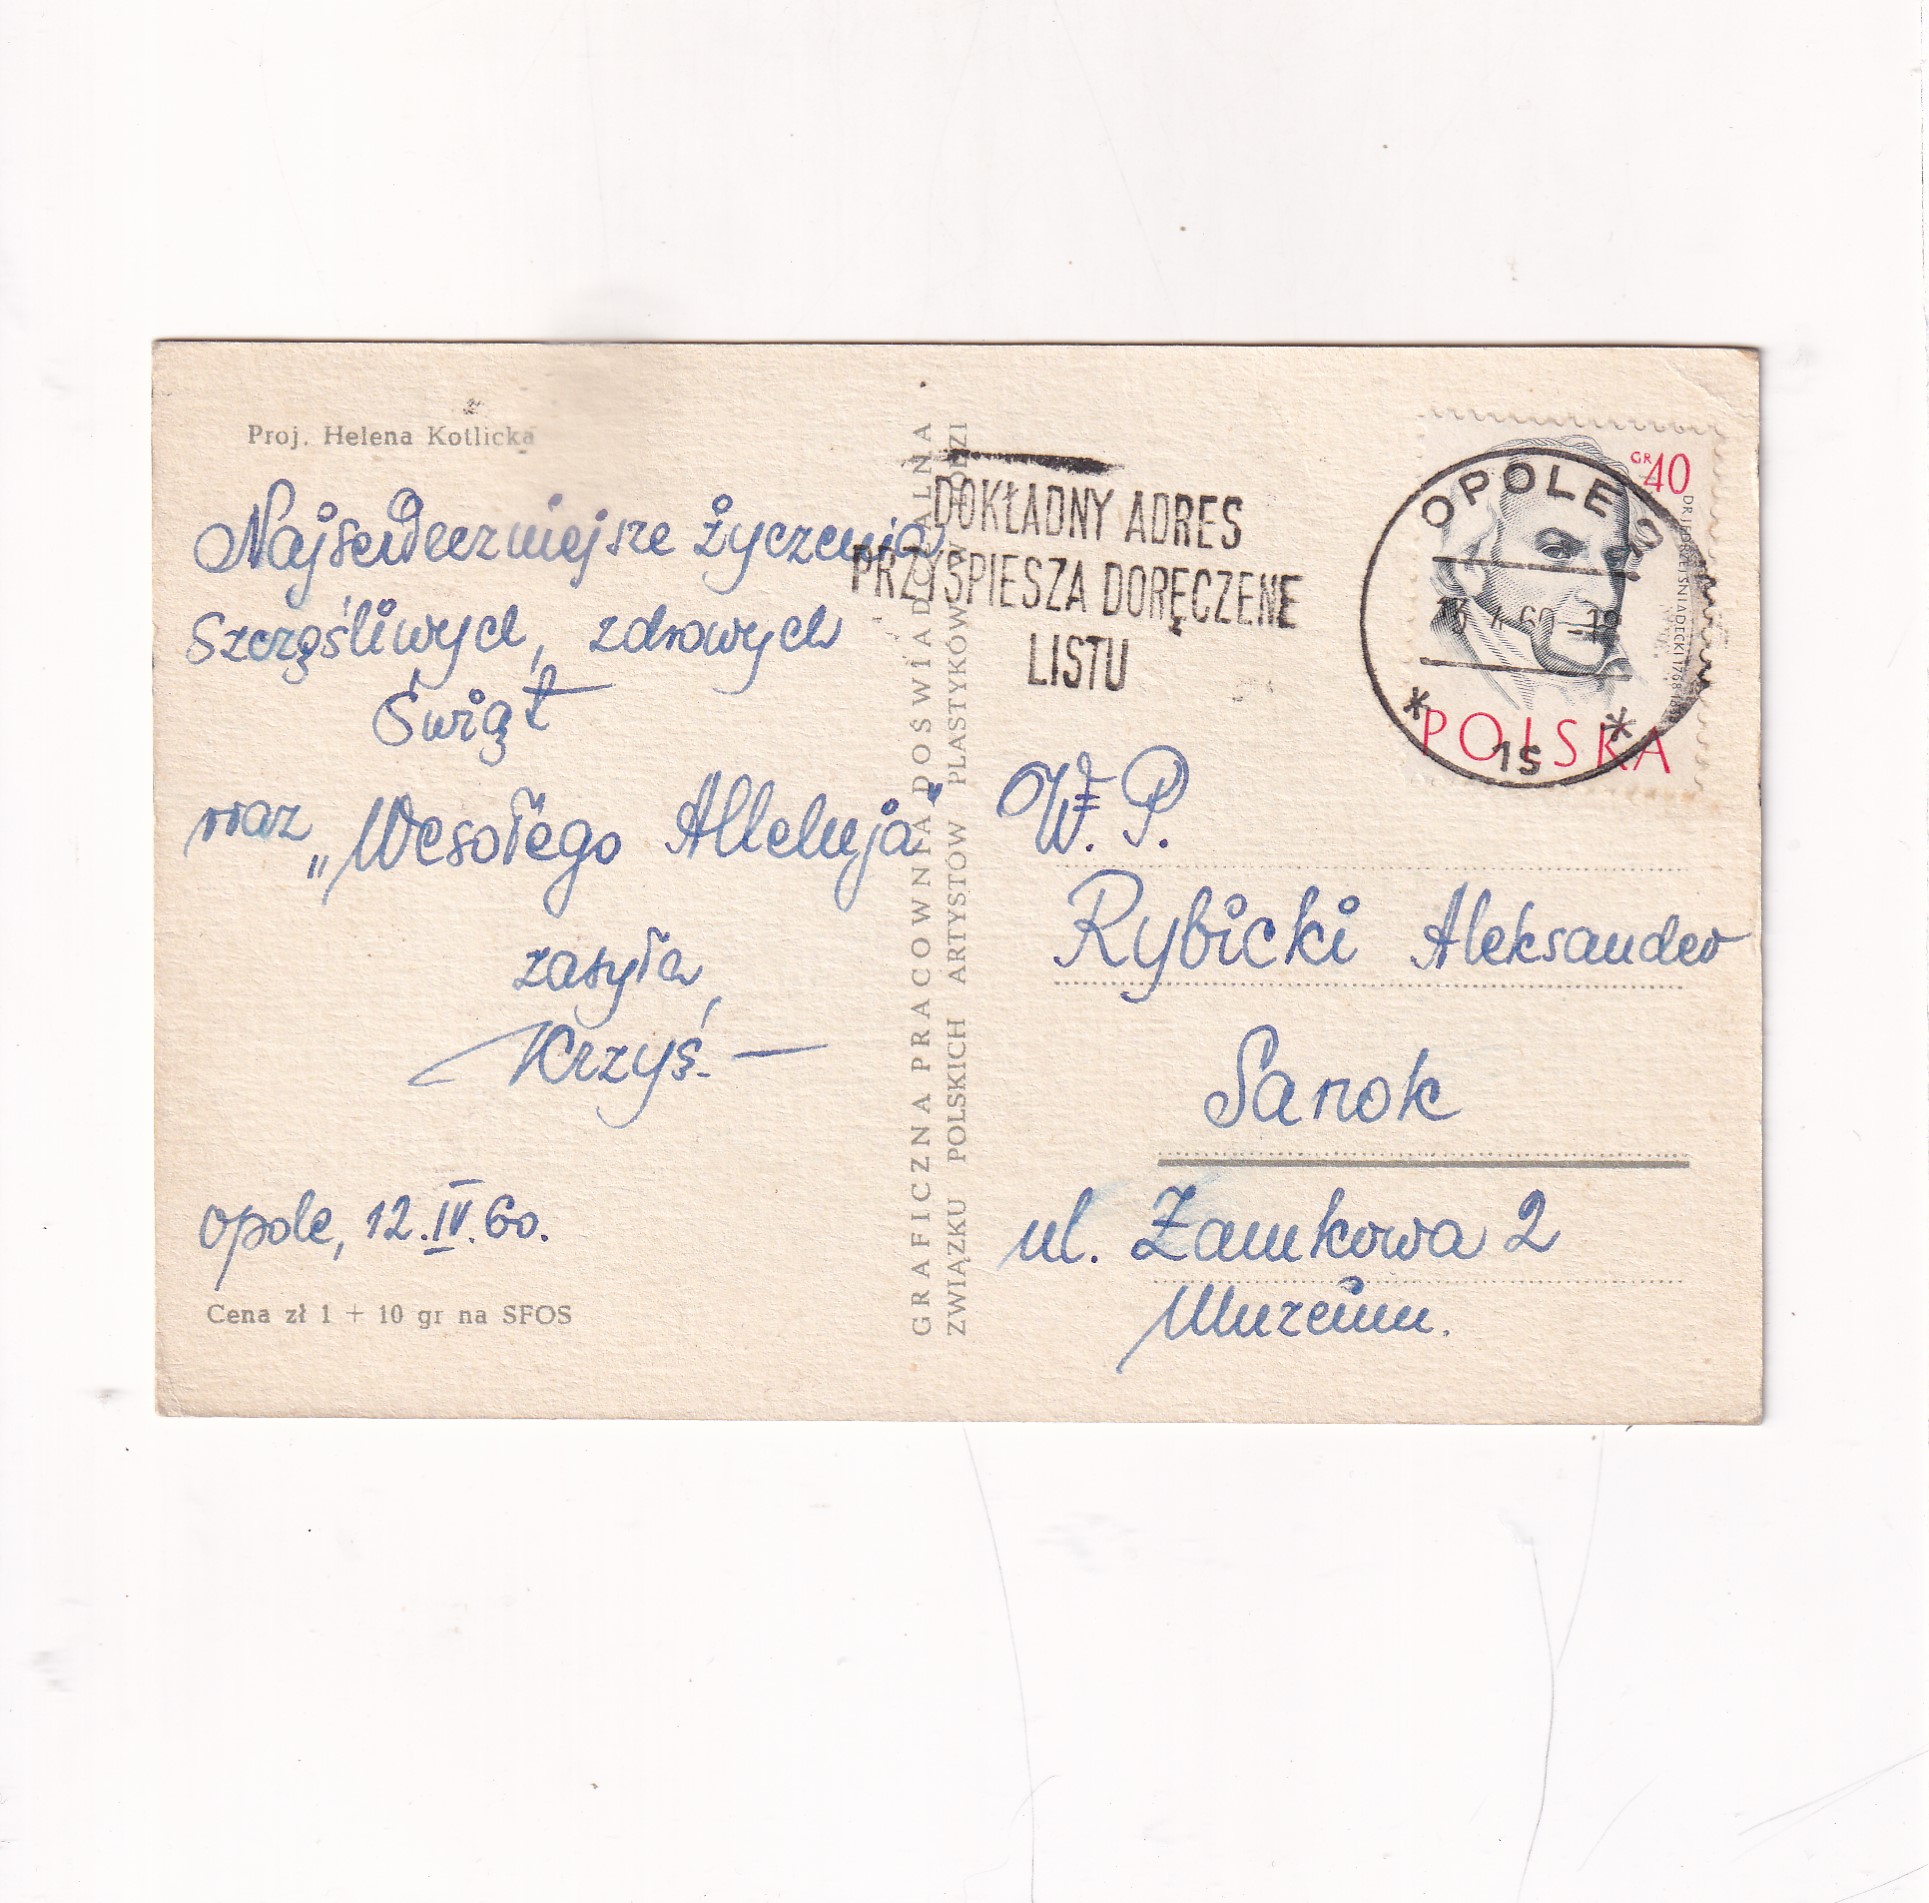 Proj. Helena Kotlicka
Najserdeczniejsze życzenia
Szczęśliwych, zdrowych
Świąt
oraz „Wesołego Alleluja"
zasyła,
Krzyś.—
Opole, 12.IV.60.
Cena zł 1 + 10 gr na SFOS
GRAFICZNA PRACOWNIA DOŚWIADCZALNA
ZWIĄZKU POLSKICH ARTYSTÓW PLASTYKÓW W ŁODZI
DOKŁADNY ADRES
PRZYŚPIESZA DORĘCZENE
LISTU
GR 40
DR JĘDRZEJ ŚNIADECKI 1768
POLSKA
OPOLE 2
13 4 60 -19
* 1S *
W.P.
Rybicki Aleksander
Sanok
ul. Zamkowa 2
Muzeum.